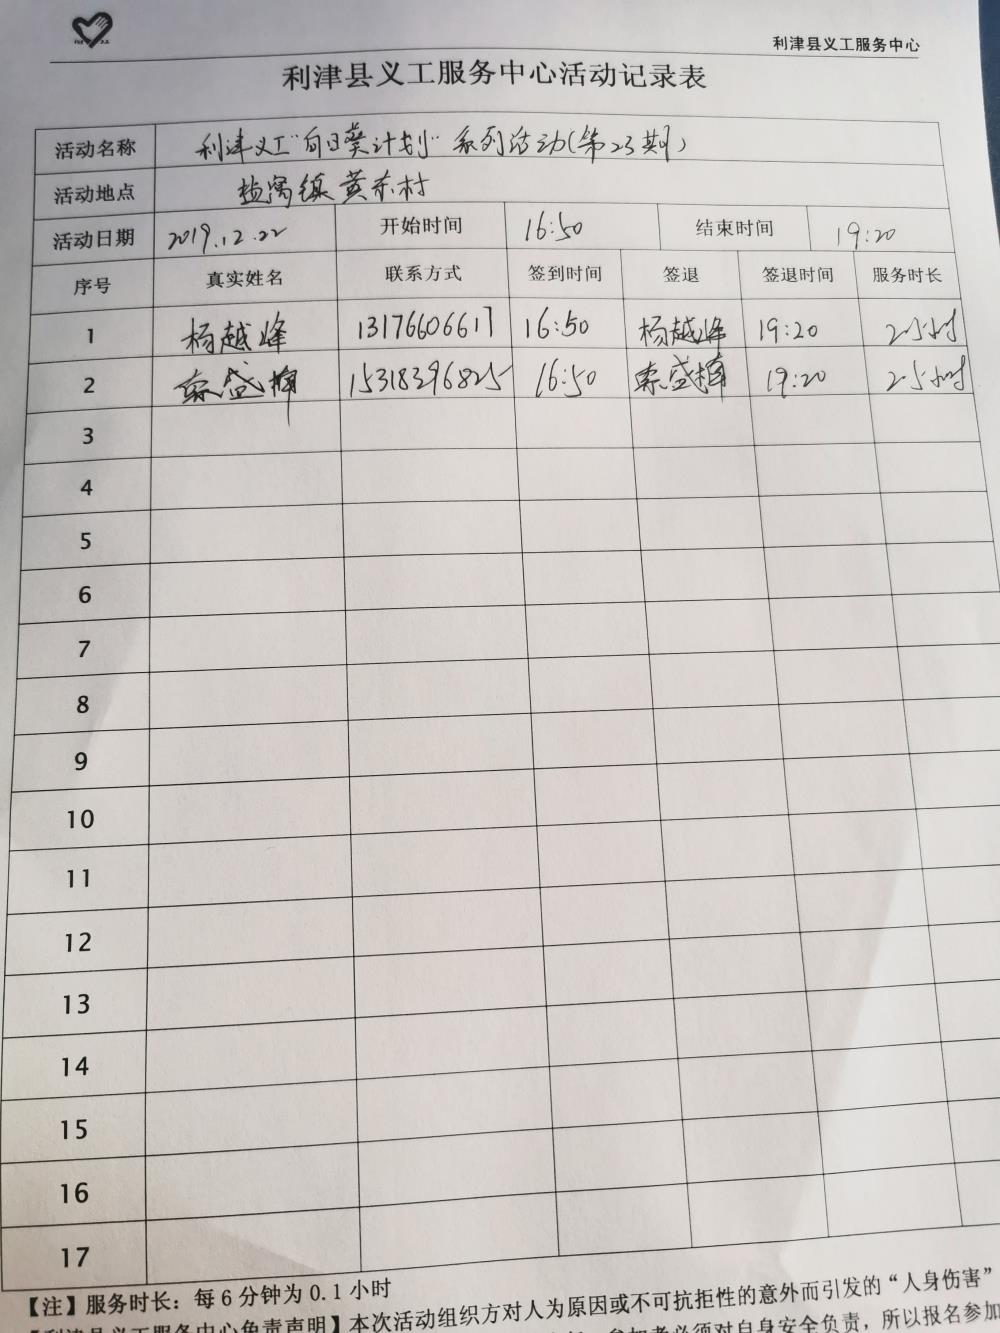 利津县义工服务中心
利津县义工服务中心活动记录表
活动名称 利津义工"向日葵计划"系列活动(第23期)
活动地点 盐窝镇黄东村
活动日期 2019.12.22 开始时间 16:50 结束时间 19:20
序号 真实姓名 联系方式 签到时间 签退 签退时间 服务时长
1 杨越峰 13176606617 16:50 杨越峰 19:20 2小时
2 索盛 15318396825 16:50 索盛 19:20 2小时
3
4
5
6
7
8
9
10
11
12
13
14
15
16
17
【注】服务时长：每6分钟为0.1小时
【利津县义工服务中心免责声明】本次活动组织方对人为原因或不可抗拒性的意外而引发的“人身伤害”
参加者必须对自身安全负责，所以报名参加